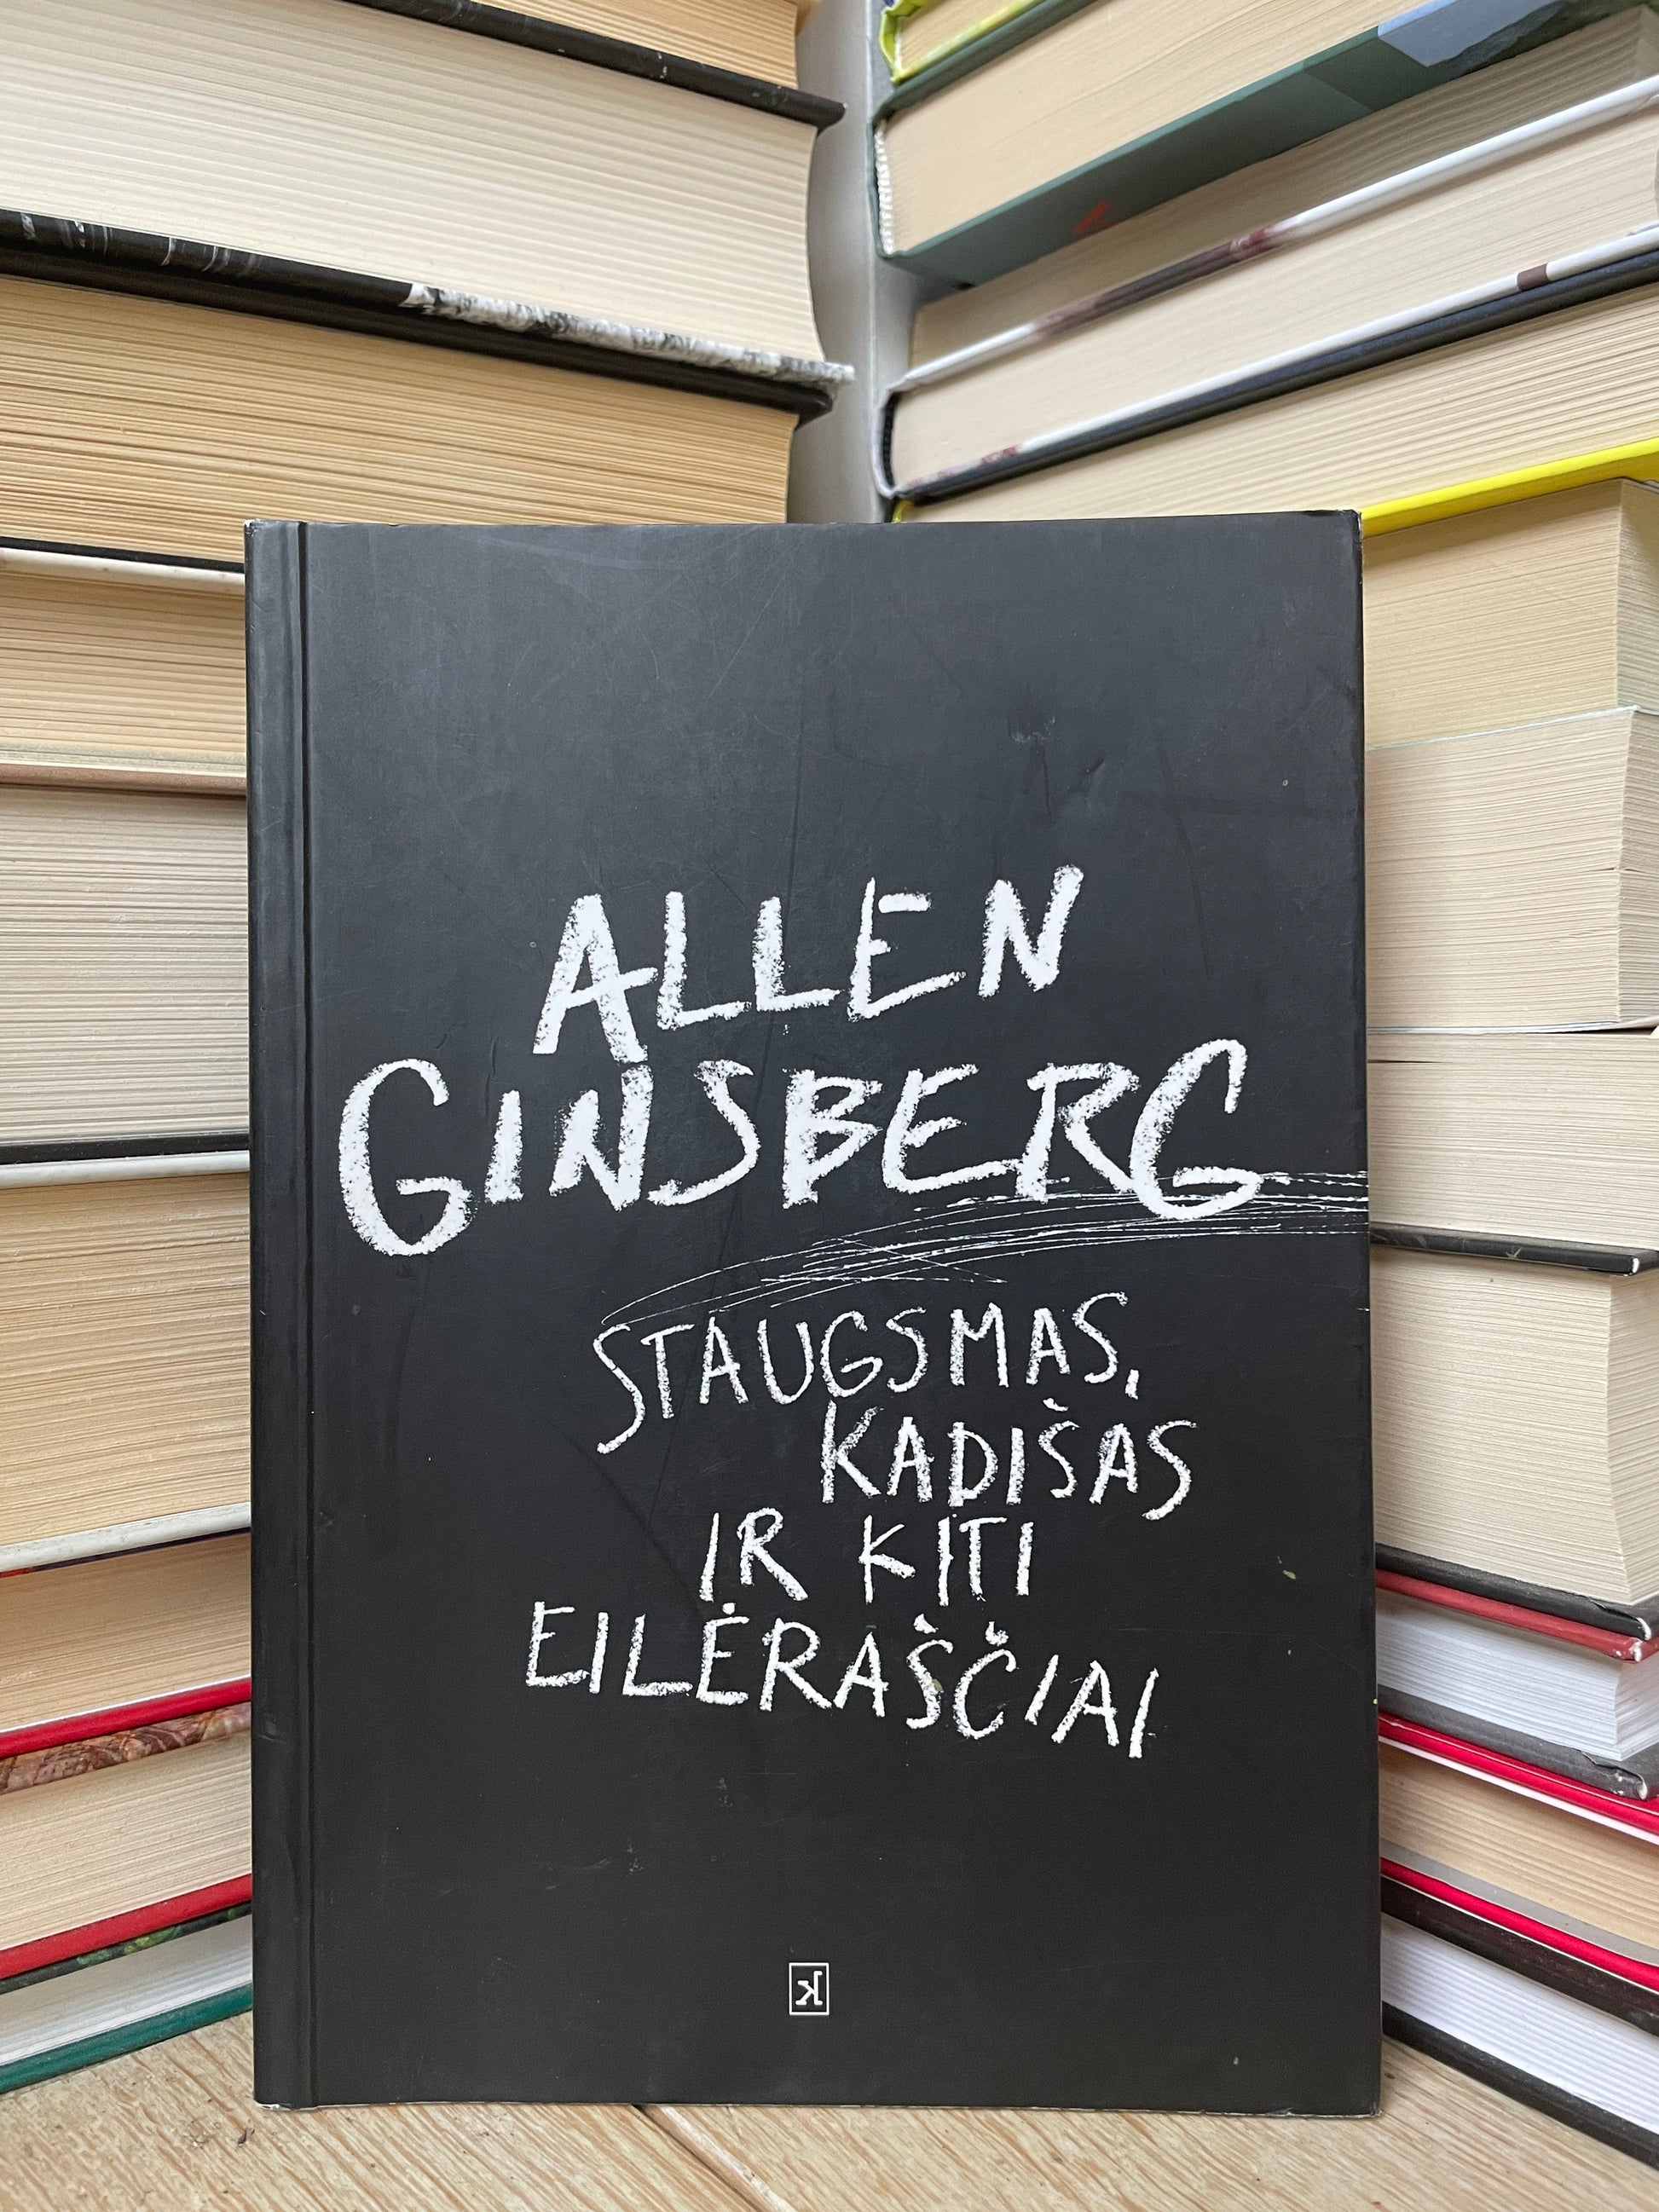 ALLEN
GINSBERG
STAUGSMAS,
KADIŠAS
IR KITI
EILĖRAŠČIAI
k